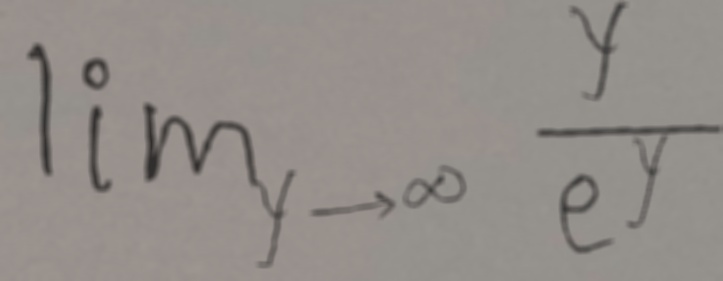 lim_{y→∞} \frac{y}{e^y}